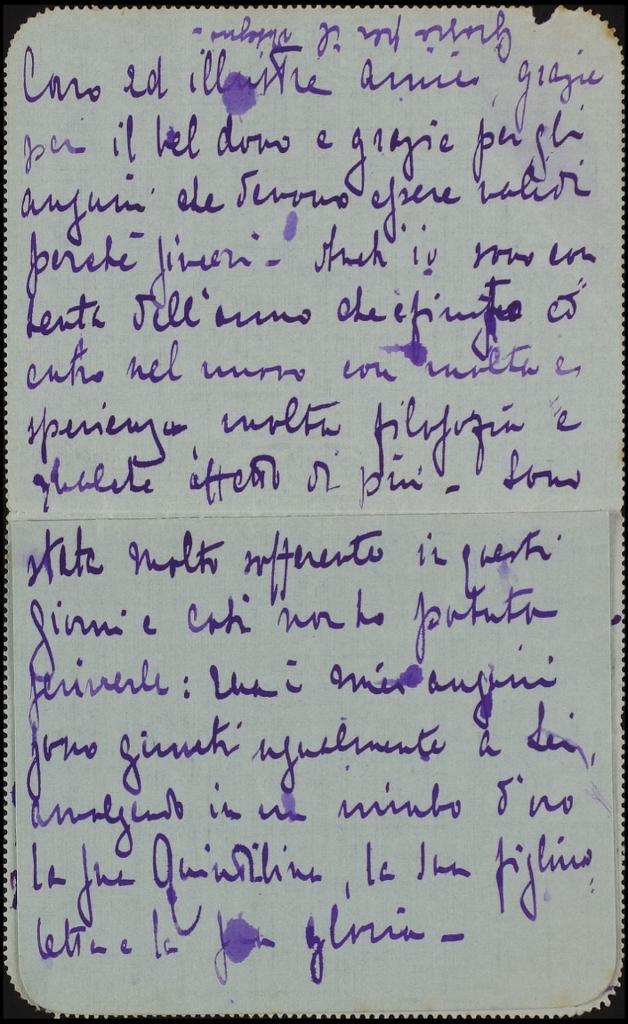 Caro ed illustre amico, grazie
per il bel dono e grazie per gli
auguri che devono essere validi
perché sinceri - Anch'io sono con
tenta dell'anno che è finito ed
entro nel nuovo con molta e
sperienza molta filosofia e
qualche affetto di più - Sono
stata molto sofferente in questi
giorni e così non ho potuto
scriverle: ma i miei auguri
sono giunti ugualmente a Lei,
avvolgendo in un nimbo d'oro
la sua Quintilina, la sua figlino
letta e la sua gloria -
Grazia per il